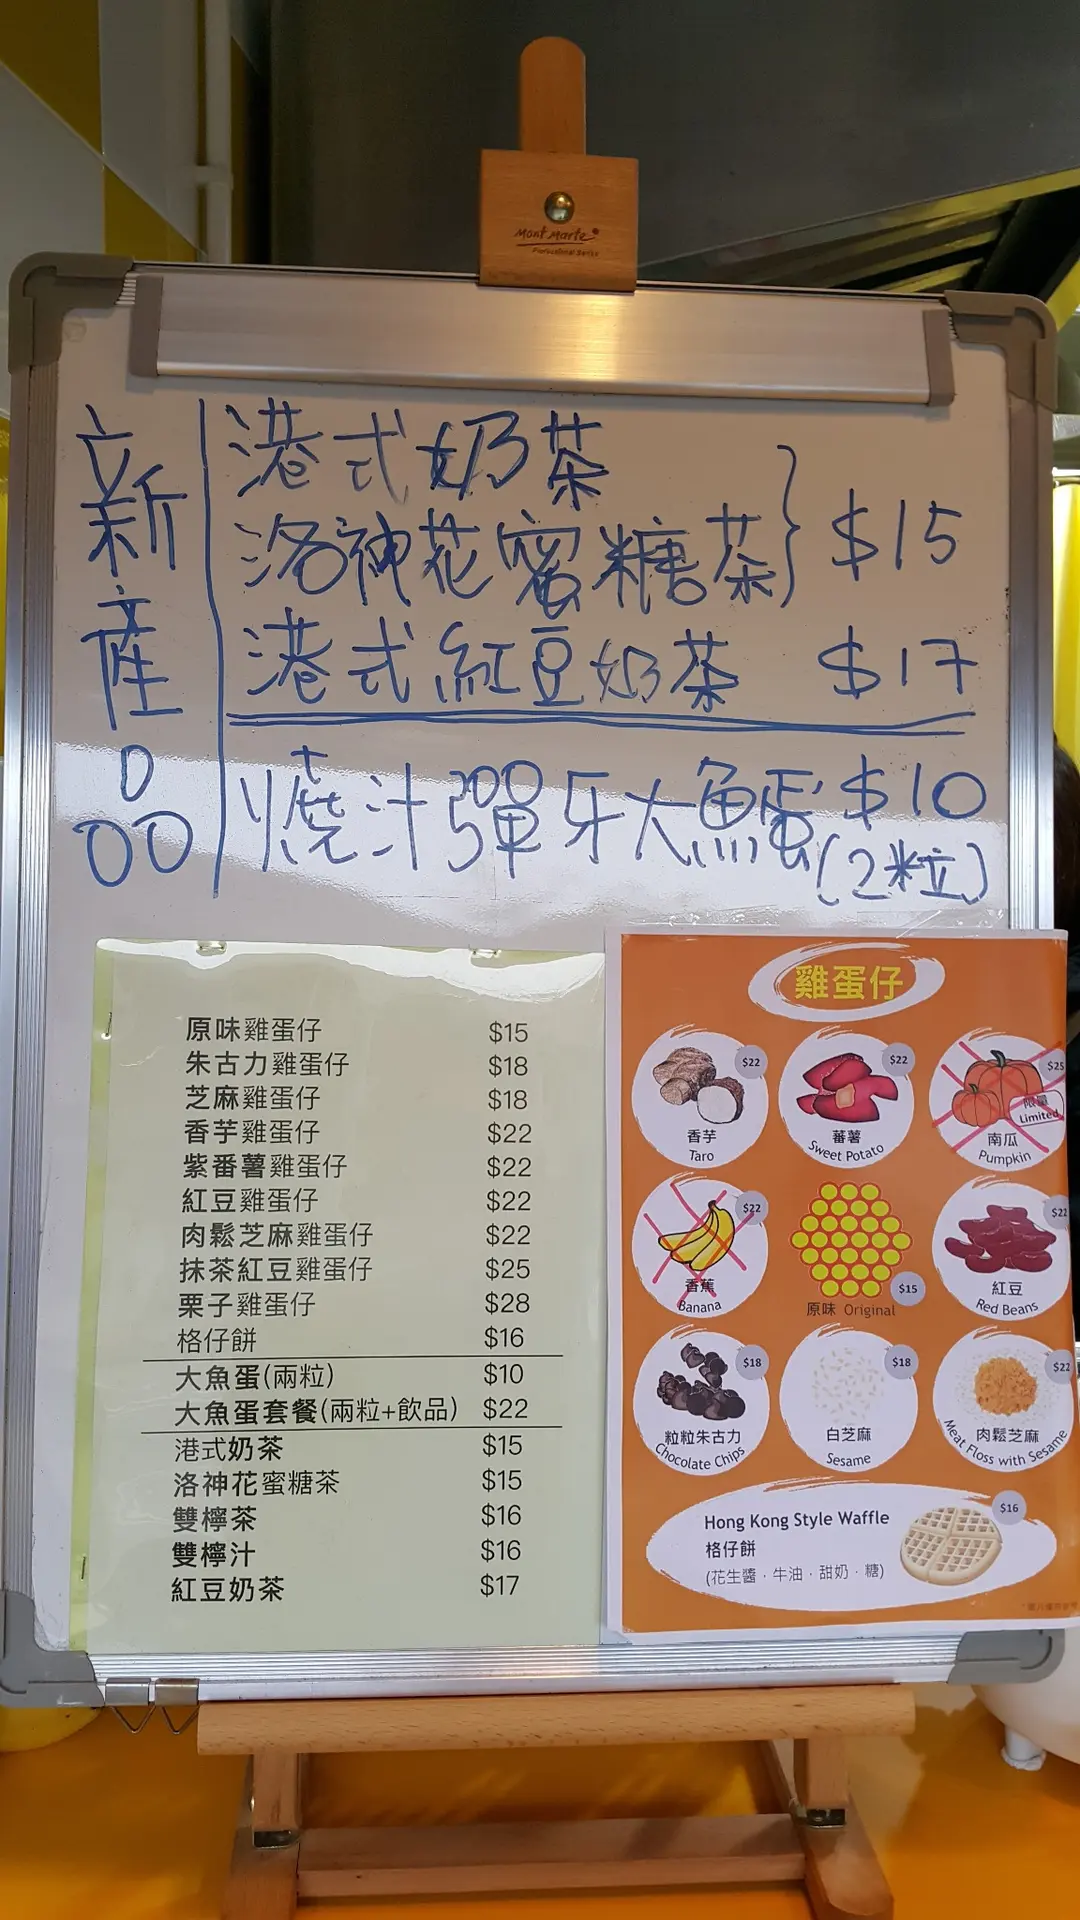 Mont Marte
新產品
港式奶茶
洛神花蜜糖茶 $15
港式紅豆奶茶 $17
燒汁彈牙大魚蛋 $10
(2粒)
原味雞蛋仔 $15
朱古力雞蛋仔 $18
芝麻雞蛋仔 $18
香芋雞蛋仔 $22
紫番薯雞蛋仔 $22
紅豆雞蛋仔 $22
肉鬆芝麻雞蛋仔 $22
抹茶紅豆雞蛋仔 $25
栗子雞蛋仔 $28
格仔餅 $16
大魚蛋(兩粒) $10
大魚蛋套餐(兩粒+飲品) $22
港式奶茶 $15
洛神花蜜糖茶 $15
雙檸茶 $16
雙檸汁 $16
紅豆奶茶 $17
雞蛋仔
$22
香芋
Taro
$22
蕃薯
Sweet Potato
$25
限量
Limited
南瓜
Pumpkin
$22
香蕉
Banana
$15
原味 Original
$22
紅豆
Red Beans
$18
粒粒朱古力
Chocolate Chips
$18
白芝麻
Sesame
$22
肉鬆芝麻
Meat Floss with Sesame
Hong Kong Style Waffle
格仔餅
(花生醬．牛油．甜奶．糖)
$16